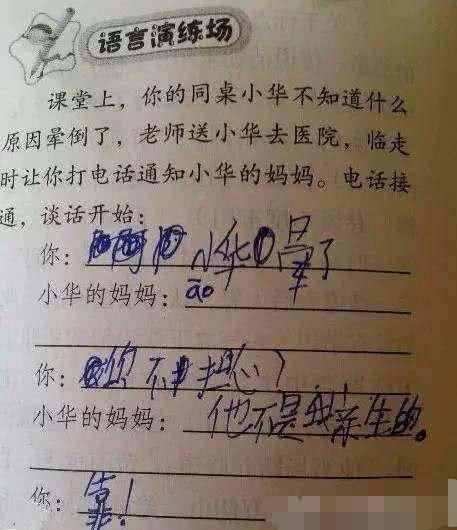 语言演练场
课堂上，你的同桌小华不知道什么
原因晕倒了，老师送小华去医院，临走
时让你打电话通知小华的妈妈。电话接
通，谈话开始：
你：小华晕了
小华的妈妈：āo
你：你不担心？
小华的妈妈：他不是我亲生的。
你：靠！